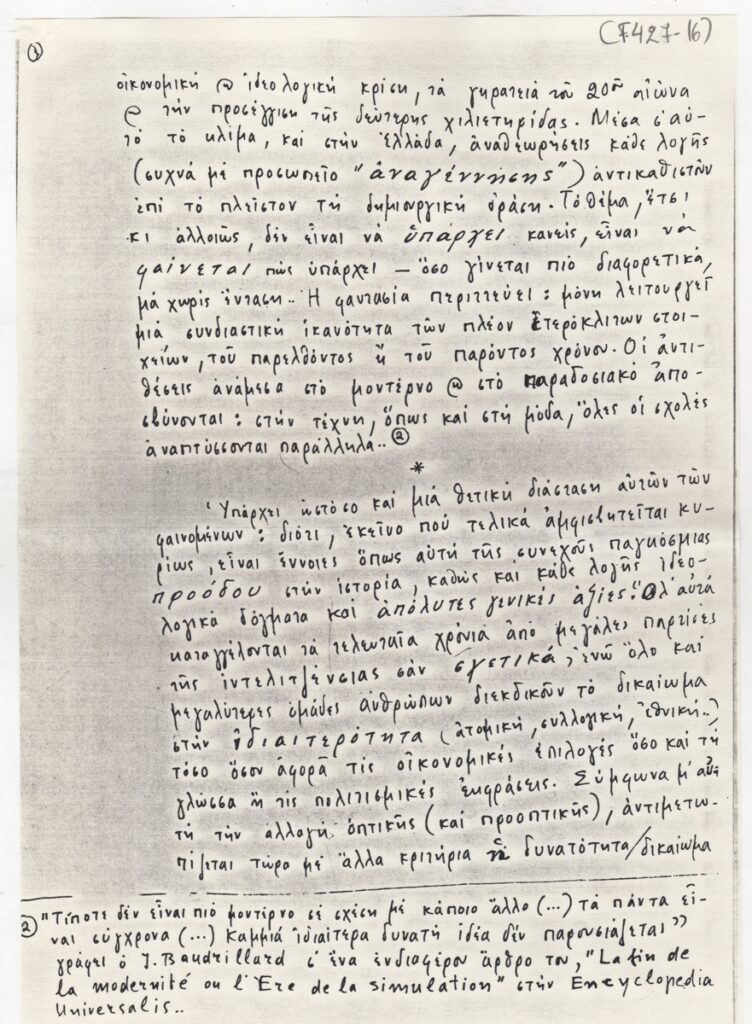 (F427-16)
③
οἰκονομική @ ἰδεολογική κρίση, τά γηρατειά τοῦ 20οῦ αἰώνα
@ τήν προσέγγιση τῆς δεύτερης χιλιετηρίδας. Μέσα σ' αὐ-
τό τό κλίμα, καί στήν Ἑλλάδα, ἀναθεωρήσεις κάθε λογῆς
(συχνά μέ προσωπεῖο "ἀναγέννησης") ἀντικαθιστοῦν
ἐπί τό πλεῖστον τή δημιουργική δράση. Τό θέμα, ἔτσι
κι ἀλλοιῶς, δέν εἶναι νά ὑπάρχει κανείς, εἶναι νά
φαίνεται πώς ὑπάρχει — ὅσο γίνεται πιό διαφορετικά,
μά χωρίς ἔνταση.. Ἡ φαντασία περιττεύει: μόνη λειτουργεῖ
μιά συνδιαστική ἱκανότητα τῶν πλέον ἑτερόκλιτων στοι-
χείων, τοῦ παρελθόντος ἤ τοῦ παρόντος χρόνου. Οἱ ἀντι-
θέσεις ἀνάμεσα στό μοντέρνο @ στό παραδοσιακό ἀπο-
σβύνονται: στήν τέχνη, ὅπως καί στή μόδα, ὅλες οἱ σχολές
ἀναπτύσσονται παράλληλα.. ②
*
Ὑπάρχει ὡστόσο καί μιά θετική διάσταση αὐτῶν τῶν
φαινομένων: διότι, ἐκεῖνο πού τελικά ἀμφισβητεῖται κυ-
ρίως, εἶναι ἔννοιες ὅπως αὐτή τῆς συνεχοῦς παγκόσμιας
προόδου στήν ἱστορία, καθώς καί κάθε λογῆς ἰδεο-
λογικά δόγματα καί ἀπόλυτες γενικές ἀξίες. Ὅλ' αὐτά
καταγγέλονται τά τελευταῖα χρόνια ἀπό μεγάλες μερίδες
τῆς ἰντελιτζένσιας σάν σχετικά, ἐνῶ ὅλο καί
μεγαλύτερες ὁμάδες ἀνθρώπων διεκδικοῦν τό δικαίωμα
στήν ἰδιαιτερότητα (ἀτομική, συλλογική, ἐθνική..)
τόσο ὅσον ἀφορᾶ τίς οἰκονομικές ἐπιλογές ὅσο καί τή
γλώσσα ἤ τίς πολιτισμικές ἐκφράσεις. Σύμφωνα μ' αὐ-
τή τήν ἀλλαγή ὀπτικῆς (καί προοπτικῆς), ἀντιμετω-
πίζεται τώρα μέ ἄλλα κριτήρια ἡ δυνατότητα/δικαίωμα
② "Τίποτε δέν εἶναι πιό μοντέρνο σέ σχέση μέ κάποιο ἄλλο (...) τά πάντα εἶ-
ναι σύγχρονα (...) Καμμιά ἰδιαίτερα δυνατή ἰδέα δέν παρουσιάζεται"
γράφει ὁ J. Baudrillard σ' ἕνα ἐνδιαφέρον ἄρθρο του, "La fin de
la modernité ou l'Ere de la simulation" στήν Encyclopedia
Universalis..